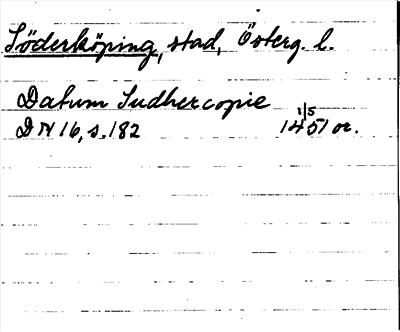 Söderköping, stad, Österg. l.
Datum Sudhercopie
D N 16, s. 182 1/5 1451 or.